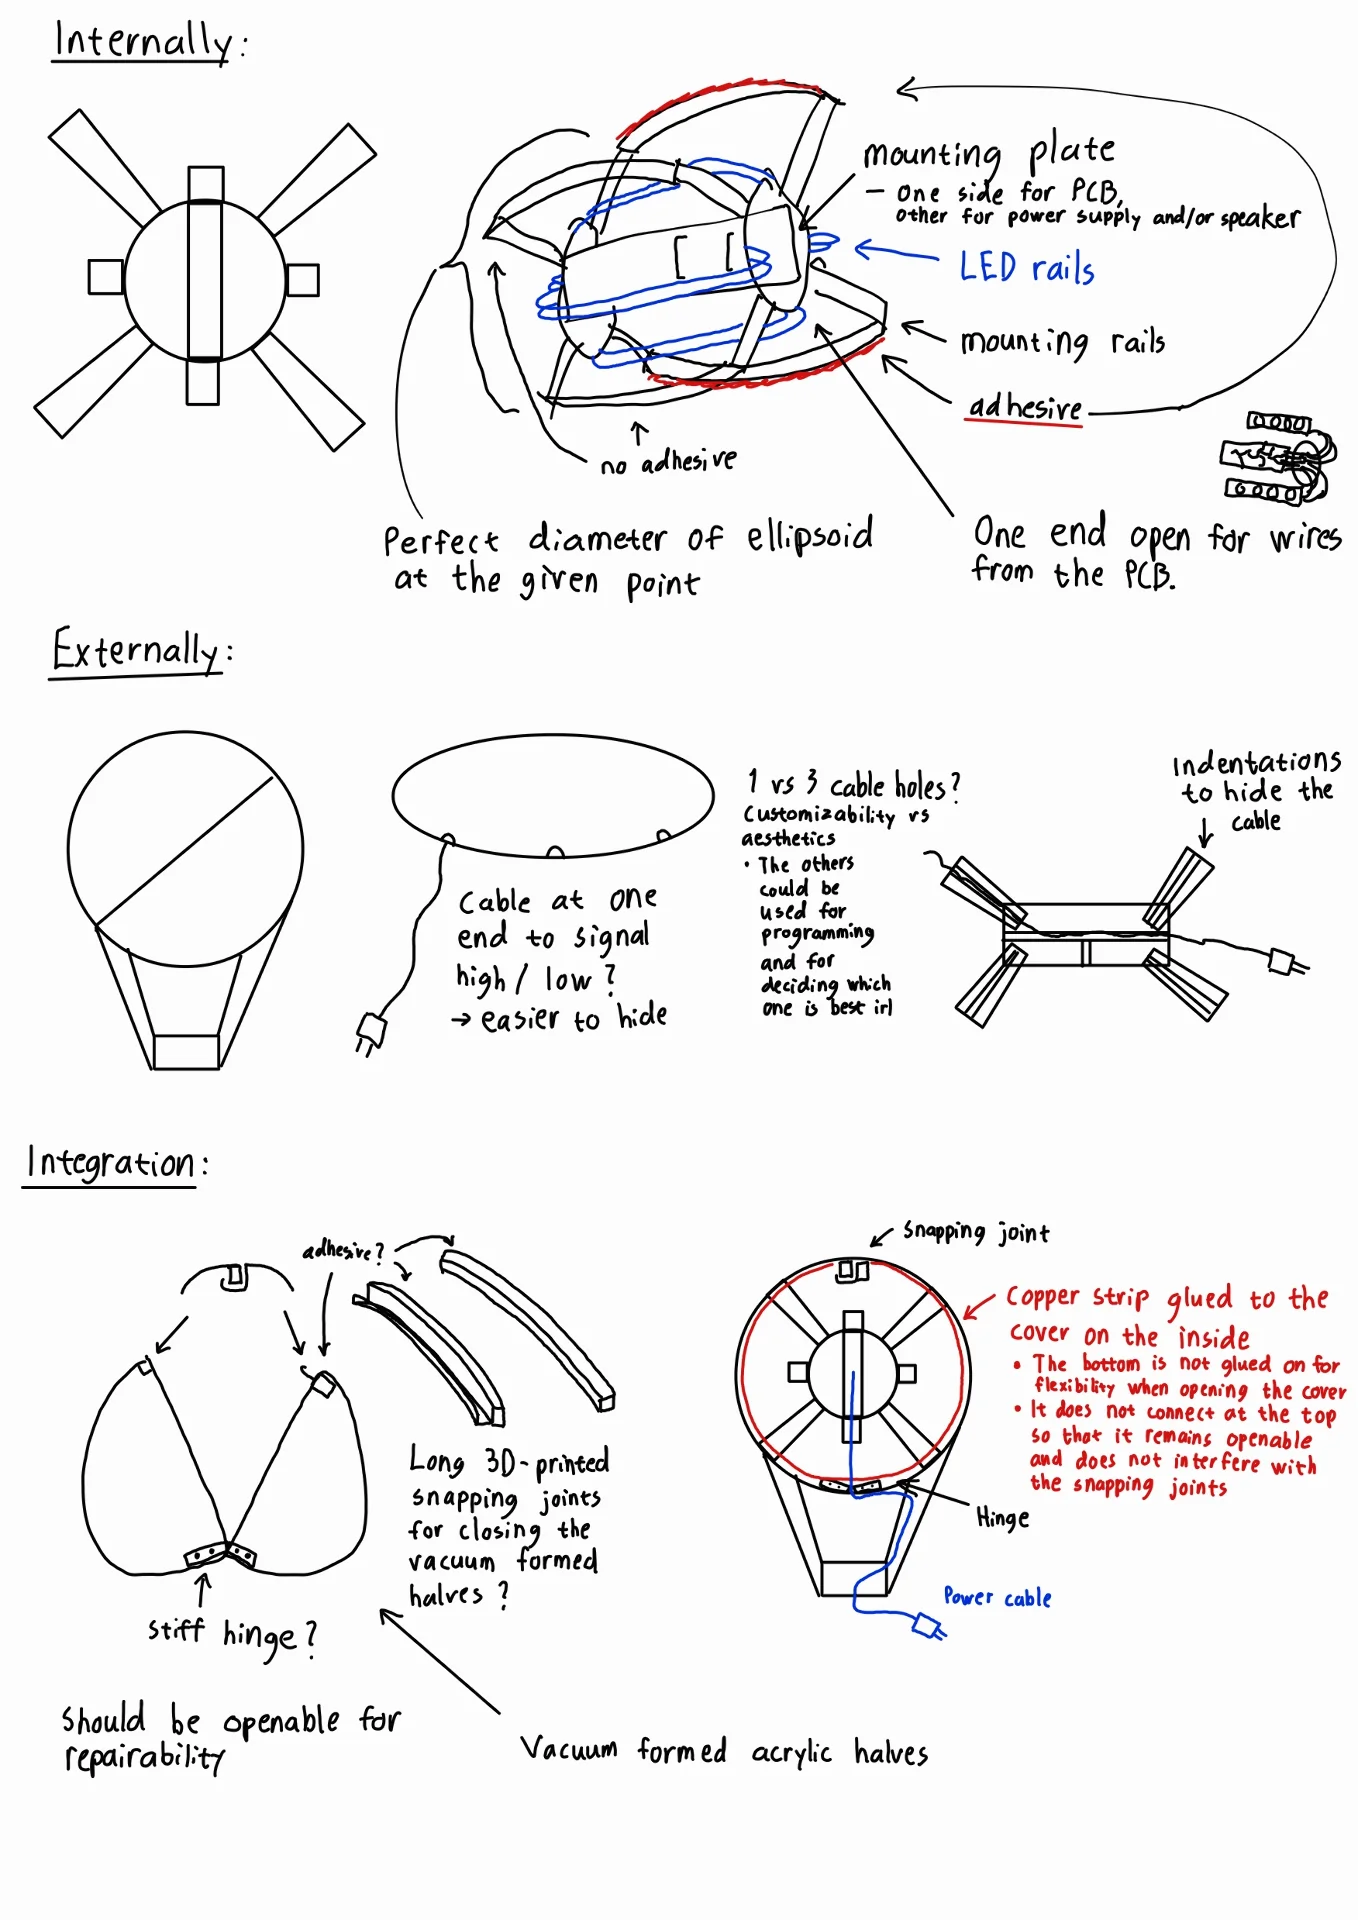 Internally:
mounting plate
- One side for PCB,
other for power supply and/or speaker
LED rails
mounting rails
adhesive
no adhesive
Perfect diameter of ellipsoid
at the given point
One end open for wires
from the PCB.
Externally:
Cable at one
end to signal
high / low ?
→ easier to hide
1 vs 3 cable holes?
Customizability vs
aesthetics
• The others
could be
used for
programming
and for
deciding which
one is best irl
Indentations
to hide the
cable
Integration:
adhesive?
Long 3D-printed
snapping joints
for closing the
vacuum formed
halves ?
Stiff hinge?
Should be openable for
repairability
Vacuum formed acrylic halves
Snapping joint
Copper strip glued to the
cover on the inside
• The bottom is not glued on for
flexibility when opening the cover
• It does not connect at the top
so that it remains openable
and does not interfere with
the snapping joints
Hinge
Power cable